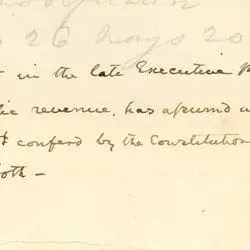 26 Nays 20
in the late Executive p
lic revenue, has asumd u
t conferd by the Constitution
oth –